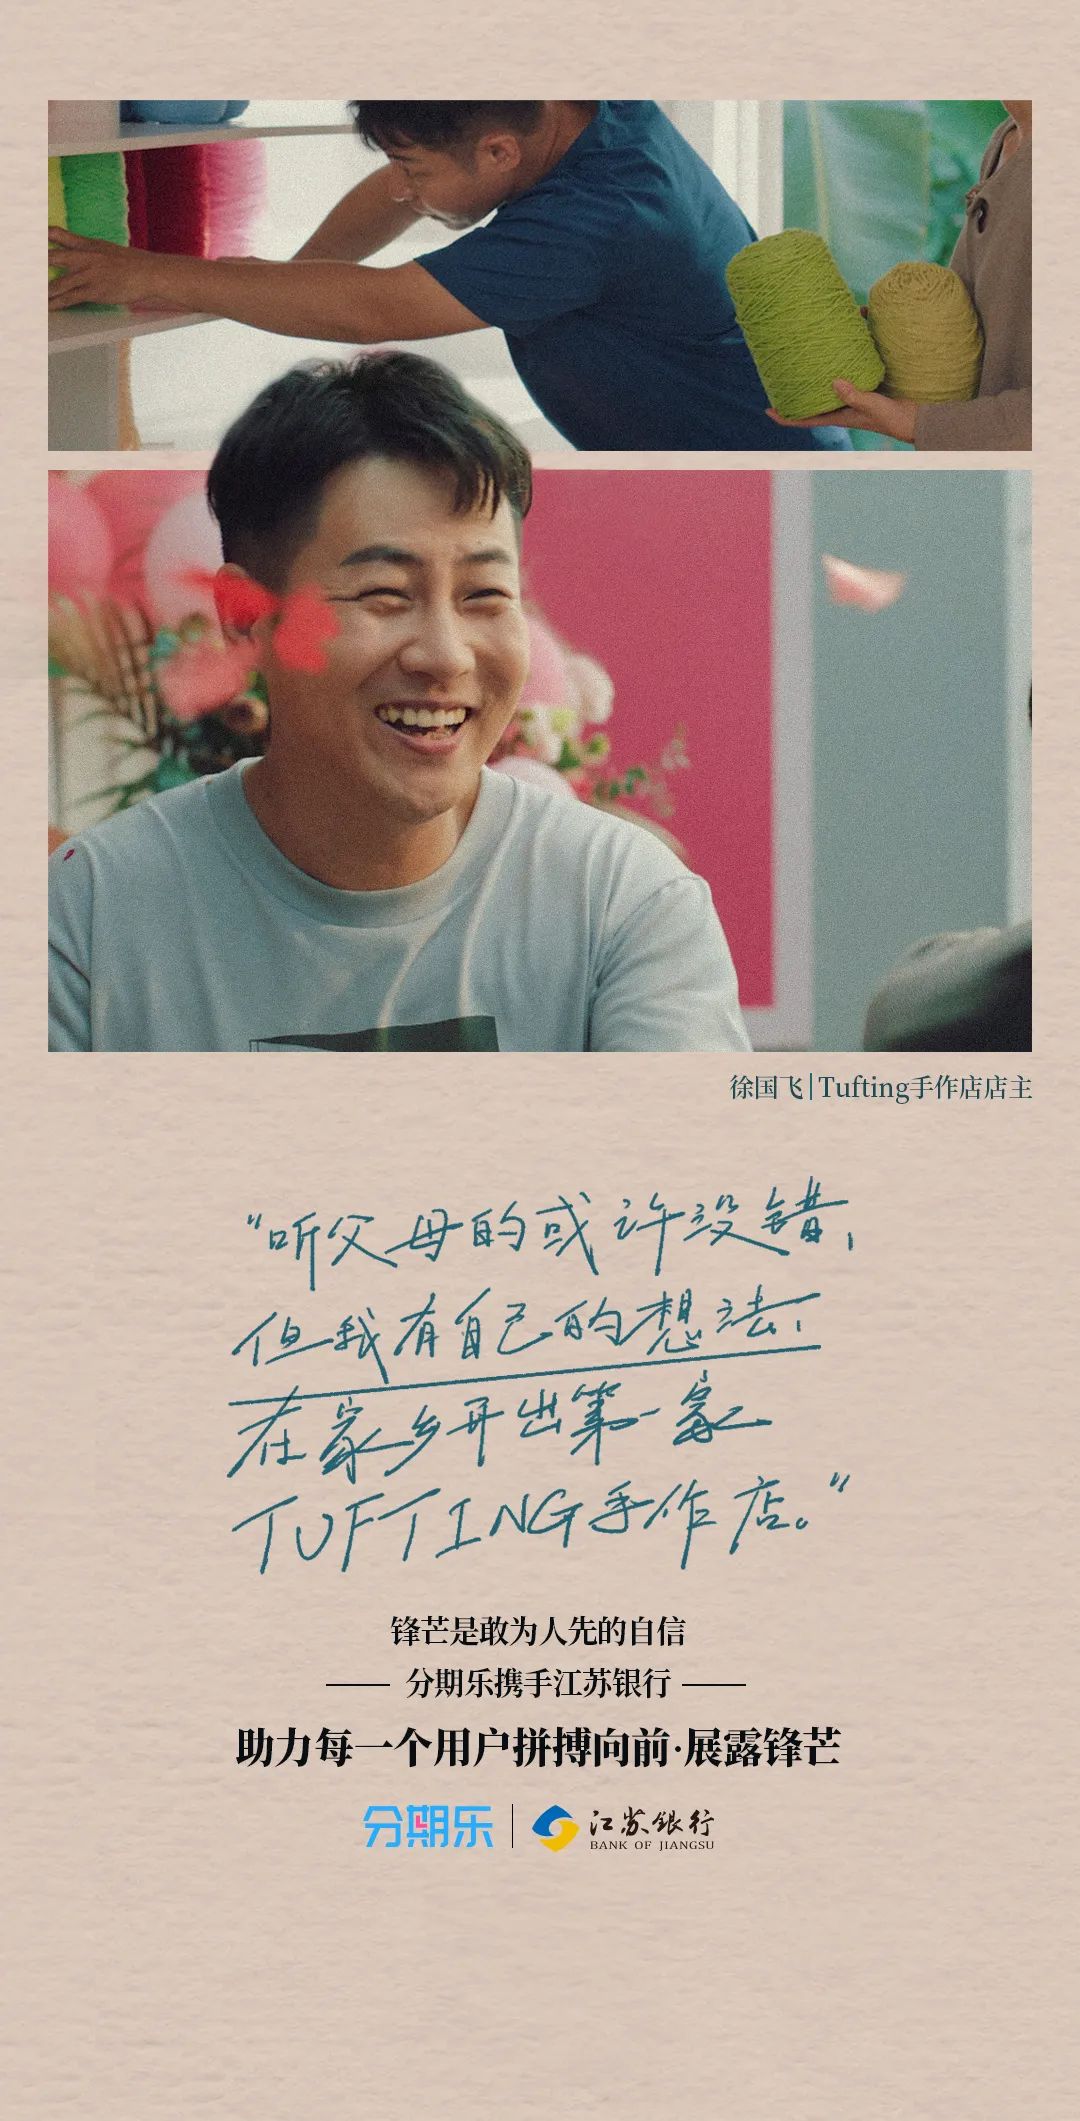 徐国飞|Tufting手作店店主
“听父母的或许没错，
但我有自己的想法：
在家乡开出第一家
TUFTING手作店。”
锋芒是敢为人先的自信
分期乐携手江苏银行
助力每一个用户拼搏向前·展露锋芒
分期乐 | 江苏银行
BANK OF JIANGSU